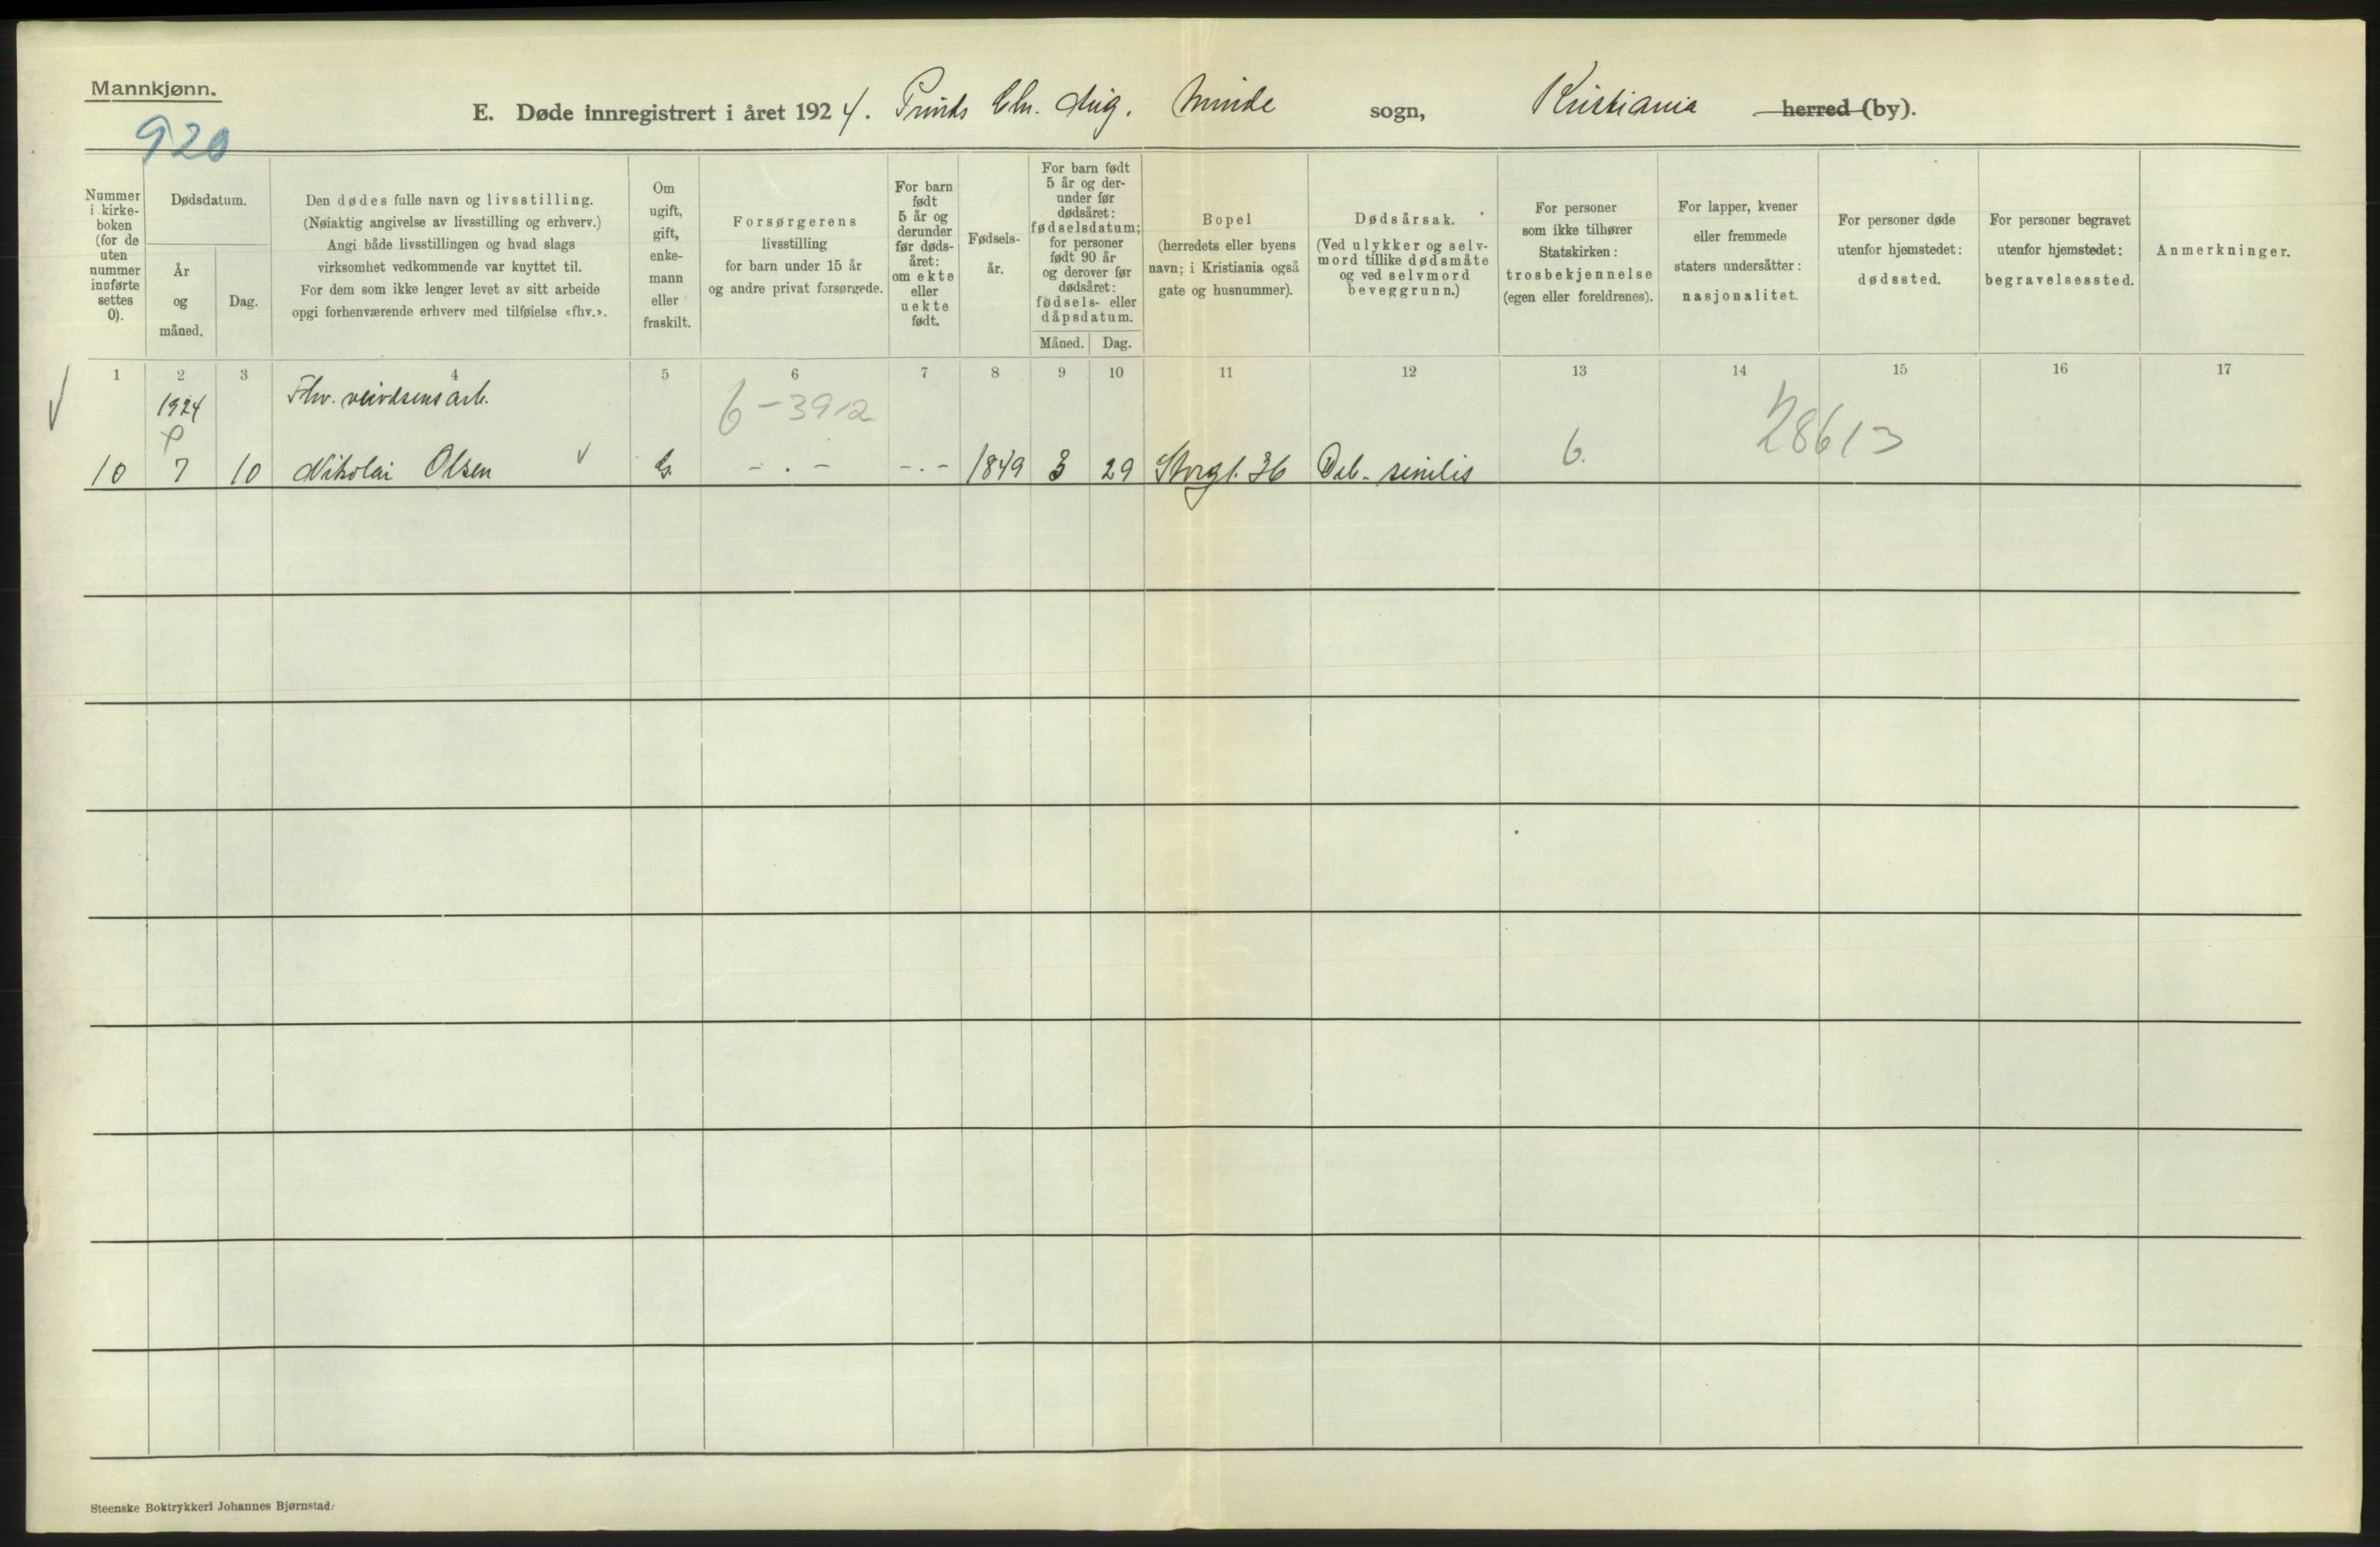 Mannkjønn.
920
E. Døde innregistrert i året 1924. Prinds Chr. Aug. Minde sogn, Kristiania herred (by).
Nummer i kirke-boken (for de uten nummer innførte settes 0).
Dødsdatum.
År og måned.
Dag.
Den dødes fulle navn og livsstilling.
(Nøiaktig angivelse av livsstilling og erhverv.)
Angi både livsstillingen og hvad slags
virksomhet vedkommende var knyttet til.
For dem som ikke lenger levet av sitt arbeide
opgi forhenværende erhverv med tilføielse «fhv.».
Om ugift, gift, enke-mann eller fraskilt.
Forsørgerens
livsstilling
for barn under 15 år
og andre privat forsørgede.
For barn født 5 år og derunder før døds-året: om ekte eller uekte født.
Fødsels-år.
For barn født 5 år og der-under før dødsåret: fødselsdatum; for personer født 90 år og derover før dødsåret: fødsels- eller dåpsdatum.
Måned. Dag.
Bopel
(herredets eller byens
navn; i Kristiania også
gate og husnummer).
Dødsårsak.
(Ved ulykker og selv-
mord tillike dødsmåte
og ved selvmord
beveggrunn.)
For personer
som ikke tilhører
Statskirken:
trosbekjennelse
(egen eller foreldrenes).
For lapper, kvener
eller fremmede
staters undersåtter:
nasjonalitet.
For personer døde
utenfor hjemstedet:
dødssted.
For personer begravet
utenfor hjemstedet:
begravelsessted.
Anmerkninger.
1 2 3 4 5 6 7 8 9 10 11 12 13 14 15 16 17
1924 Fhv. arb. 6-3912 28613
10 7 10 Nikolai Olsen G. -.- -.- 1849 3 29 Storgt. 36 Deb. senilis 6.
Steenske Boktrykkeri Johannes Bjørnstad.